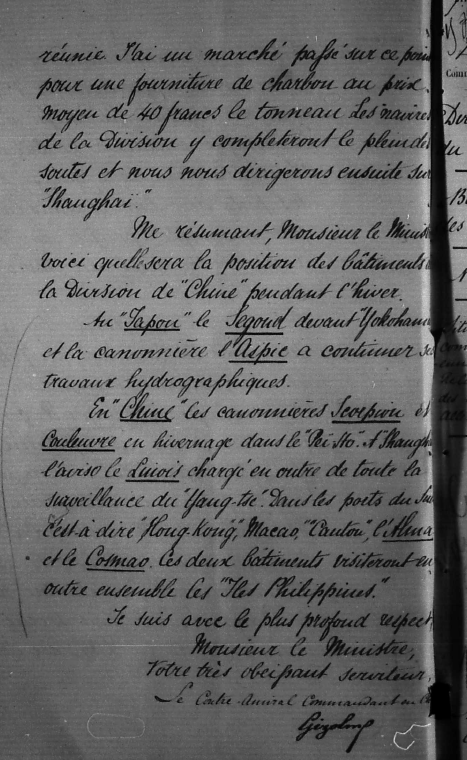 réunie. J'ai un marché passé sur ce point
pour une fourniture de charbon au prix
moyen de 40 francs le tonneau. Les navires
de la Division y completeront le plein de
soutes et nous nous dirigerons ensuite sur
"Shanghaï."
Me résumant, Monsieur le Minis
voici quelle sera la position des bâtiments
la Division de "Chine" pendant l'hiver.
Au "Japon" le Segond devant "Yokohama
et la canonnière l'Aspic a continuer
travaux hydrographiques.
En "Chine" les canonnières Scorpion et
Couleuvre en hivernage dans le "Peï-Ho". A "Shangh
l'aviso le Linois chargé en outre de toute la
surveillance du "Yang-tse". Dans les ports du Su
c'est-à-dire "Hong-Kong", Macao, "Canton", l'Alma
et le Cosmao. Ces deux bâtiments visiteront en
outre ensemble les "Iles Philippines."
Je suis avec le plus profond respect,
Monsieur le Ministre,
Votre très obeissant serviteur,
Le Contre-Amiral Commandant en